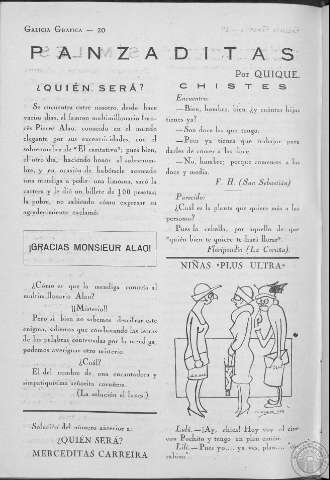 GALICIA GRÁFICA — 20
PANZADITAS
Por QUIQUE.
¿QUIÉN SERÁ?
Se encuentra entre nosotros, desde hace
varios días, el famoso multimillonario
Pierre Alao, conocido en el mundo
elegante por sus excesos, con el
sobrenombre de "El caritativo"; pues bien,
el otro día, haciendo honor al sobrenom-
bre, y en ocasión de habérsele acercado
una mendiga a pedir una limosna, sacó la
cartera y le dió un billete de 100 pesetas;
la pobre, no sabiendo cómo expresar su
agradecimiento exclamó:
¡GRACIAS MONSIEUR ALAO!
¿Cómo es que la mendiga conocía al
multimillonario Alao?
¡¡Misterio!!
Pero si bien no sabemos descifrar este
enigma, sabemos que combinando las letras
de las palabras contestadas por la mendiga,
podemos averiguar otro misterio.
¿Cuál?
El del nombre de una encantadora y
simpatiquísima señorita coruñesa.
(La solución el lunes.)
Solución del número anterior a
¿QUIÉN SERÁ?
MERCEDITAS CARREIRA
CHISTES
Encuentro:
—Bien, hombre, bien ¿y cuántos hijos
tienes ya?
—Son doce los que tengo.
—Pero ya tienes que trabajar para
darles de comer a los doce.
—No, hombre; porque comemos a las
doce y media.
F. H. (San Sebastián)
Parecido:
¿Cuál es la planta que quiere más a las
personas?
Pues la cebolla, por aquello de que
"quien bien te quiere te hará llorar".
Floripondia (La Coruña).
NIÑAS "PLUS ULTRA"
Lulú.—¡Ay, chica! Hoy voy al cine
con Pochito y tengo un plan
Lili.—Pues yo.... ya ves, plan....